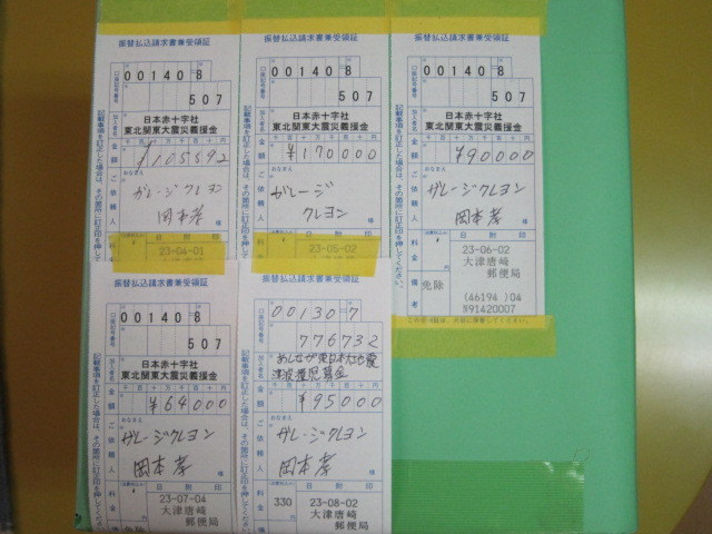 振替払込請求書兼受領証
口座記号番号
00140 8
507
加入者名
日本赤十字社
東北関東大震災義援金
金額
千百十万千百十円
¥105592
ご依頼人
おなまえ
ガレージクレヨン
岡本孝
様
料金
日附印
23-04-01
記載事項を訂正した場合は、その箇所に訂正印を押して
振替払込請求書兼受領証
口座記号番号
00140 8
507
加入者名
日本赤十字社
東北関東大震災義援金
金額
千百十万千百十円
¥170000
ご依頼人
おなまえ
ガレージ
クレヨン
様
料金
日附印
23-05-02
記載事項を訂正した場合は、その箇所に訂正印を押して
振替払込請求書兼受領証
口座記号番号
00140 8
507
加入者名
日本赤十字社
東北関東大震災義援金
金額
千百十万千百十円
¥90000
ご依頼人
おなまえ
ガレージクレヨン
岡本孝
様
料金
日附印
23-06-02
大津唐崎
郵便局
備考
免除
(46194 )04
N91420007
記載事項を訂正した場合は、その箇所に訂正印を押してください。
振替払込請求書兼受領証
口座記号番号
00140 8
507
加入者名
日本赤十字社
東北関東大震災義援金
金額
千百十万千百十円
¥64000
ご依頼人
おなまえ
ガレージクレヨン
岡本孝
様
料金
日附印
23-07-04
大津唐崎
郵便局
備
免除
記載事項を訂正した場合は、その箇所に訂正印を押してください。
振替払込請求書兼受領証
口座記号番号
00130 7
776732
加入者名
あしなが東日本大地震
津波遺児募金
金額
千百十万千百十円
¥95000
ご依頼人
おなまえ
ガレージクレヨン
岡本孝
様
料金
330
円
日附印
23-08-02
大津唐崎
郵便局
記載事項を訂正した場合は、その箇所に訂正印を押してください。